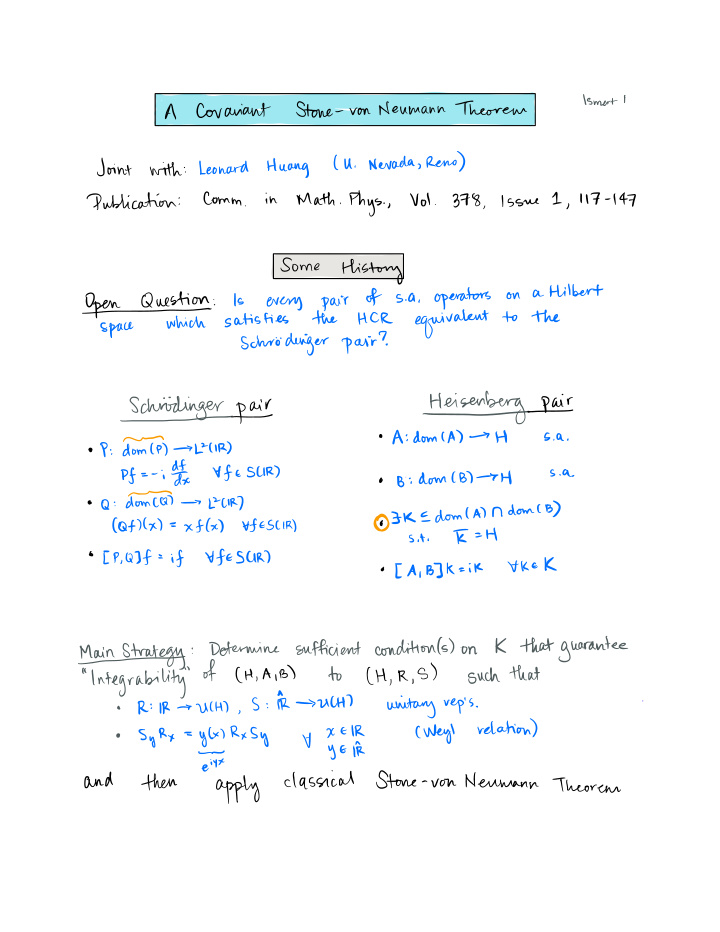 Ismert 1
A Covariant Stone-von Neumann Theorem
Joint with: Leonard Huang (U. Nevada, Reno)
Publication: Comm. in Math. Phys., Vol. 378, Issue 1, 117-147
Some History
Open Question: Is every pair of s.a. operators on a Hilbert
space which satisfies the HCR equivalent to the
Schrödinger pair?
Schrödinger pair
• P: dom(P) → L²(IR)
Pf = -i df/dx ∀f ∈ S(IR)
• Q: dom(Q) → L²(IR)
(Qf)(x) = x f(x) ∀f∈S(IR)
• [P,Q]f = if ∀f∈S(IR)
Heisenberg pair
• A: dom(A) → H s.a.
• B: dom(B) → H s.a
• ∃K ≤ dom(A) ∩ dom(B)
s.t. K̅ = H
• [A,B]k = ik ∀k∈K
Main Strategy: Determine sufficient condition(s) on K that guarantee
"Integrability" of (H,A,B) to (H,R,S) such that
• R: IR → U(H), S: IR̂ → U(H) unitary rep's.
• SyRx = y(x) RxSy ∀ x ∈ IR (Weyl relation)
e^{iyx} y ∈ IR̂
and then apply classical Stone-von Neumann Theorem